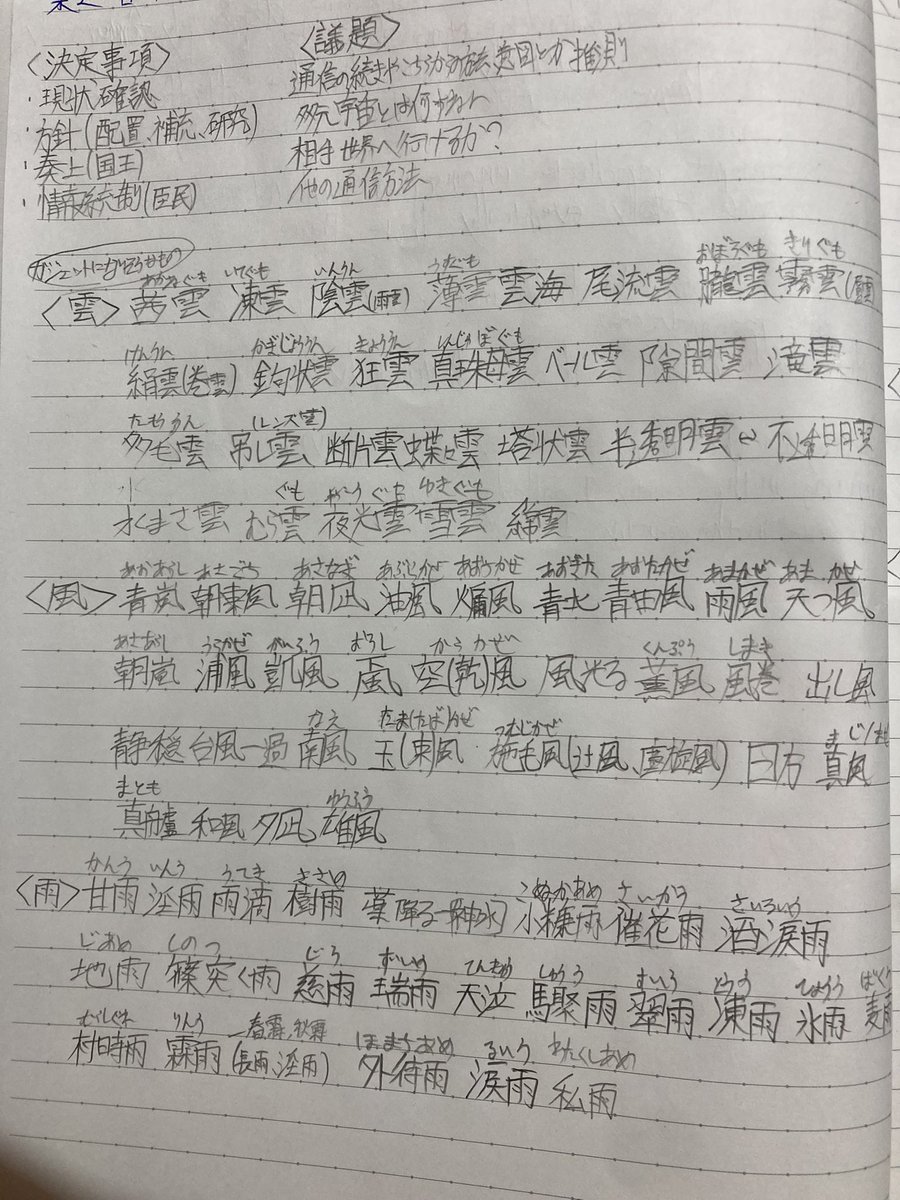 〈決定事項〉
・現状確認
・方針(配置、補充、研究)
・奏上(国王)
・情報統制(臣民)
〈議題〉
通信の続きやこちらからの 意図とか推測
多元宇宙とは何かねん
相手世界へ行けるか?
他の通信方法
ガジェットになりそうなもの
あかねぐも いてぐも いんうん うすぐも おぼろぐも きりぐも
〈雲〉茜雲 凍雲 陰雲(雨雲) 薄雲 雲海 尾流雲 朧雲 霧雲
けんうん かぎじょううん きょううん しんじゅぼぐも
絹雲(巻雲) 鉤状雲 狂雲 真珠母雲 ベール雲 隙間雲 滝雲
たもううん (レンズ雲)
多毛雲 吊し雲 断片雲 蝶々雲 塔状雲 半透明雲⇔不透明雲
ぐも やこうぐも ゆきぐも
水まさ雲 むら雲 夜光雲 雪雲 綿雲
あおあらし あさごち あさなぎ あぶらかぜ あおりかぜ あおぎた あおたかぜ あまかぜ あまつかぜ
〈風〉青嵐 朝東風 朝凪 油風 煽風 青北 青田風 雨風 天つ風
あさあらし うらかぜ がいふう おろし からかぜ くんぷう しまき
朝嵐 浦風 凱風 颪 空(乾)風 風光る 薫風 風巻 出し風
なえ たま(たば)かぜ つむじかぜ まじ/まぜ
静穏 台風一過 南風 玉(束)風 旋毛風(辻風、 旋風) 日方 真風
まとも ゆうふう
真艫 和風 夕凪 雄風
かんう いんう うてき きさめ こぬかあめ さいかう さいるいう
〈雨〉甘雨 淫雨 雨滴 樹雨 薬降る-神水 小糠雨 催花雨 洒涙雨
じあめ しのつ じう ずいう てんきゅう しゅうう すいう とうう ひょうう ばくう
地雨 篠突く雨 慈雨 瑞雨 天泣 驟雨 翠雨 凍雨 氷雨 麦雨
むらしぐれ りんう -春霖、秋霖 ほまちあめ るいう わたくしあめ
村時雨 霖雨(長雨、淫雨) 外待雨 涙雨 私雨